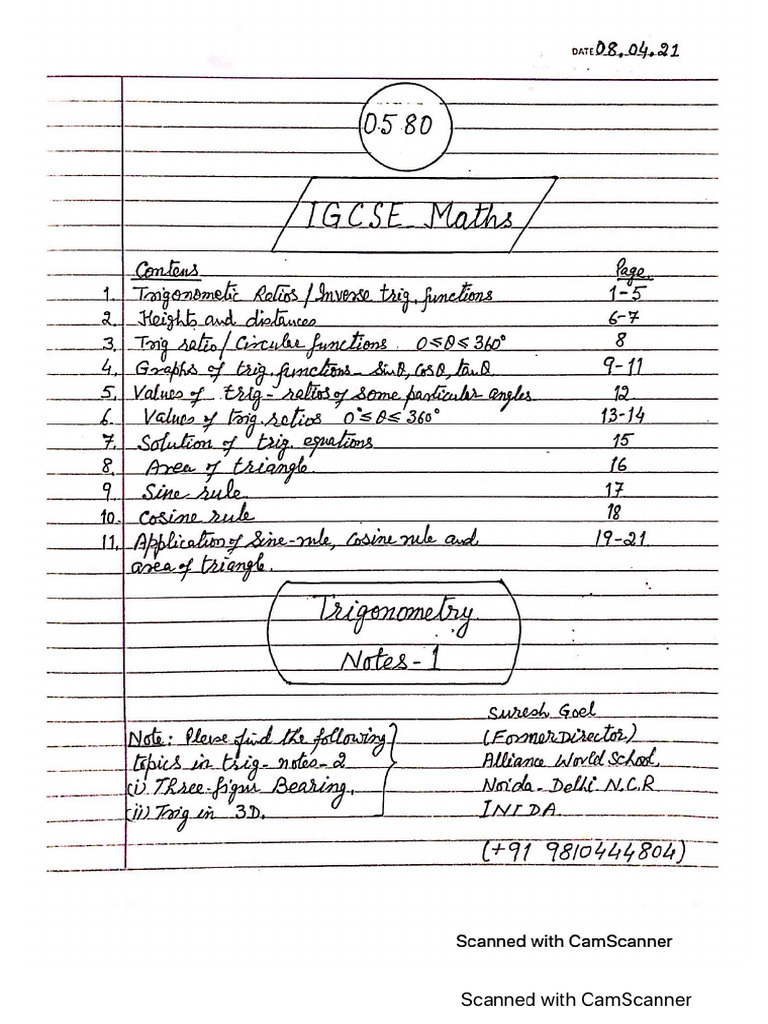 DATE 08.04.21
0580
IGCSE Maths
Contens Page
1. Trigonometic Ratios / Inverse trig. functions 1-5
2. Heights and distances 6-7
3. Trig ratio / Circular functions 0≤θ≤360° 8
4. Graphs of trig. functions - sinθ, cosθ, tanθ 9-11
5. Values of trig- ratios of some particular angles 12
6. Values of trig. ratios 0°≤θ≤360° 13-14
7. Solution of trig. equations 15
8. Area of triangle 16
9. Sine rule 17
10. Cosine rule 18
11. Application of Sine-rule, Cosine rule and 19-21
area of triangle.
Trigonometry
Notes-1
Note: Please find the following
topics in trig- notes-2
(i) Three-figur Bearing.
(ii) Trig in 3D.
Suresh Goel
(Former Director)
Alliance World School,
Noida- Delhi N.C.R
INIDA.
(+91 9810444804)
Scanned with CamScanner
Scanned with CamScanner